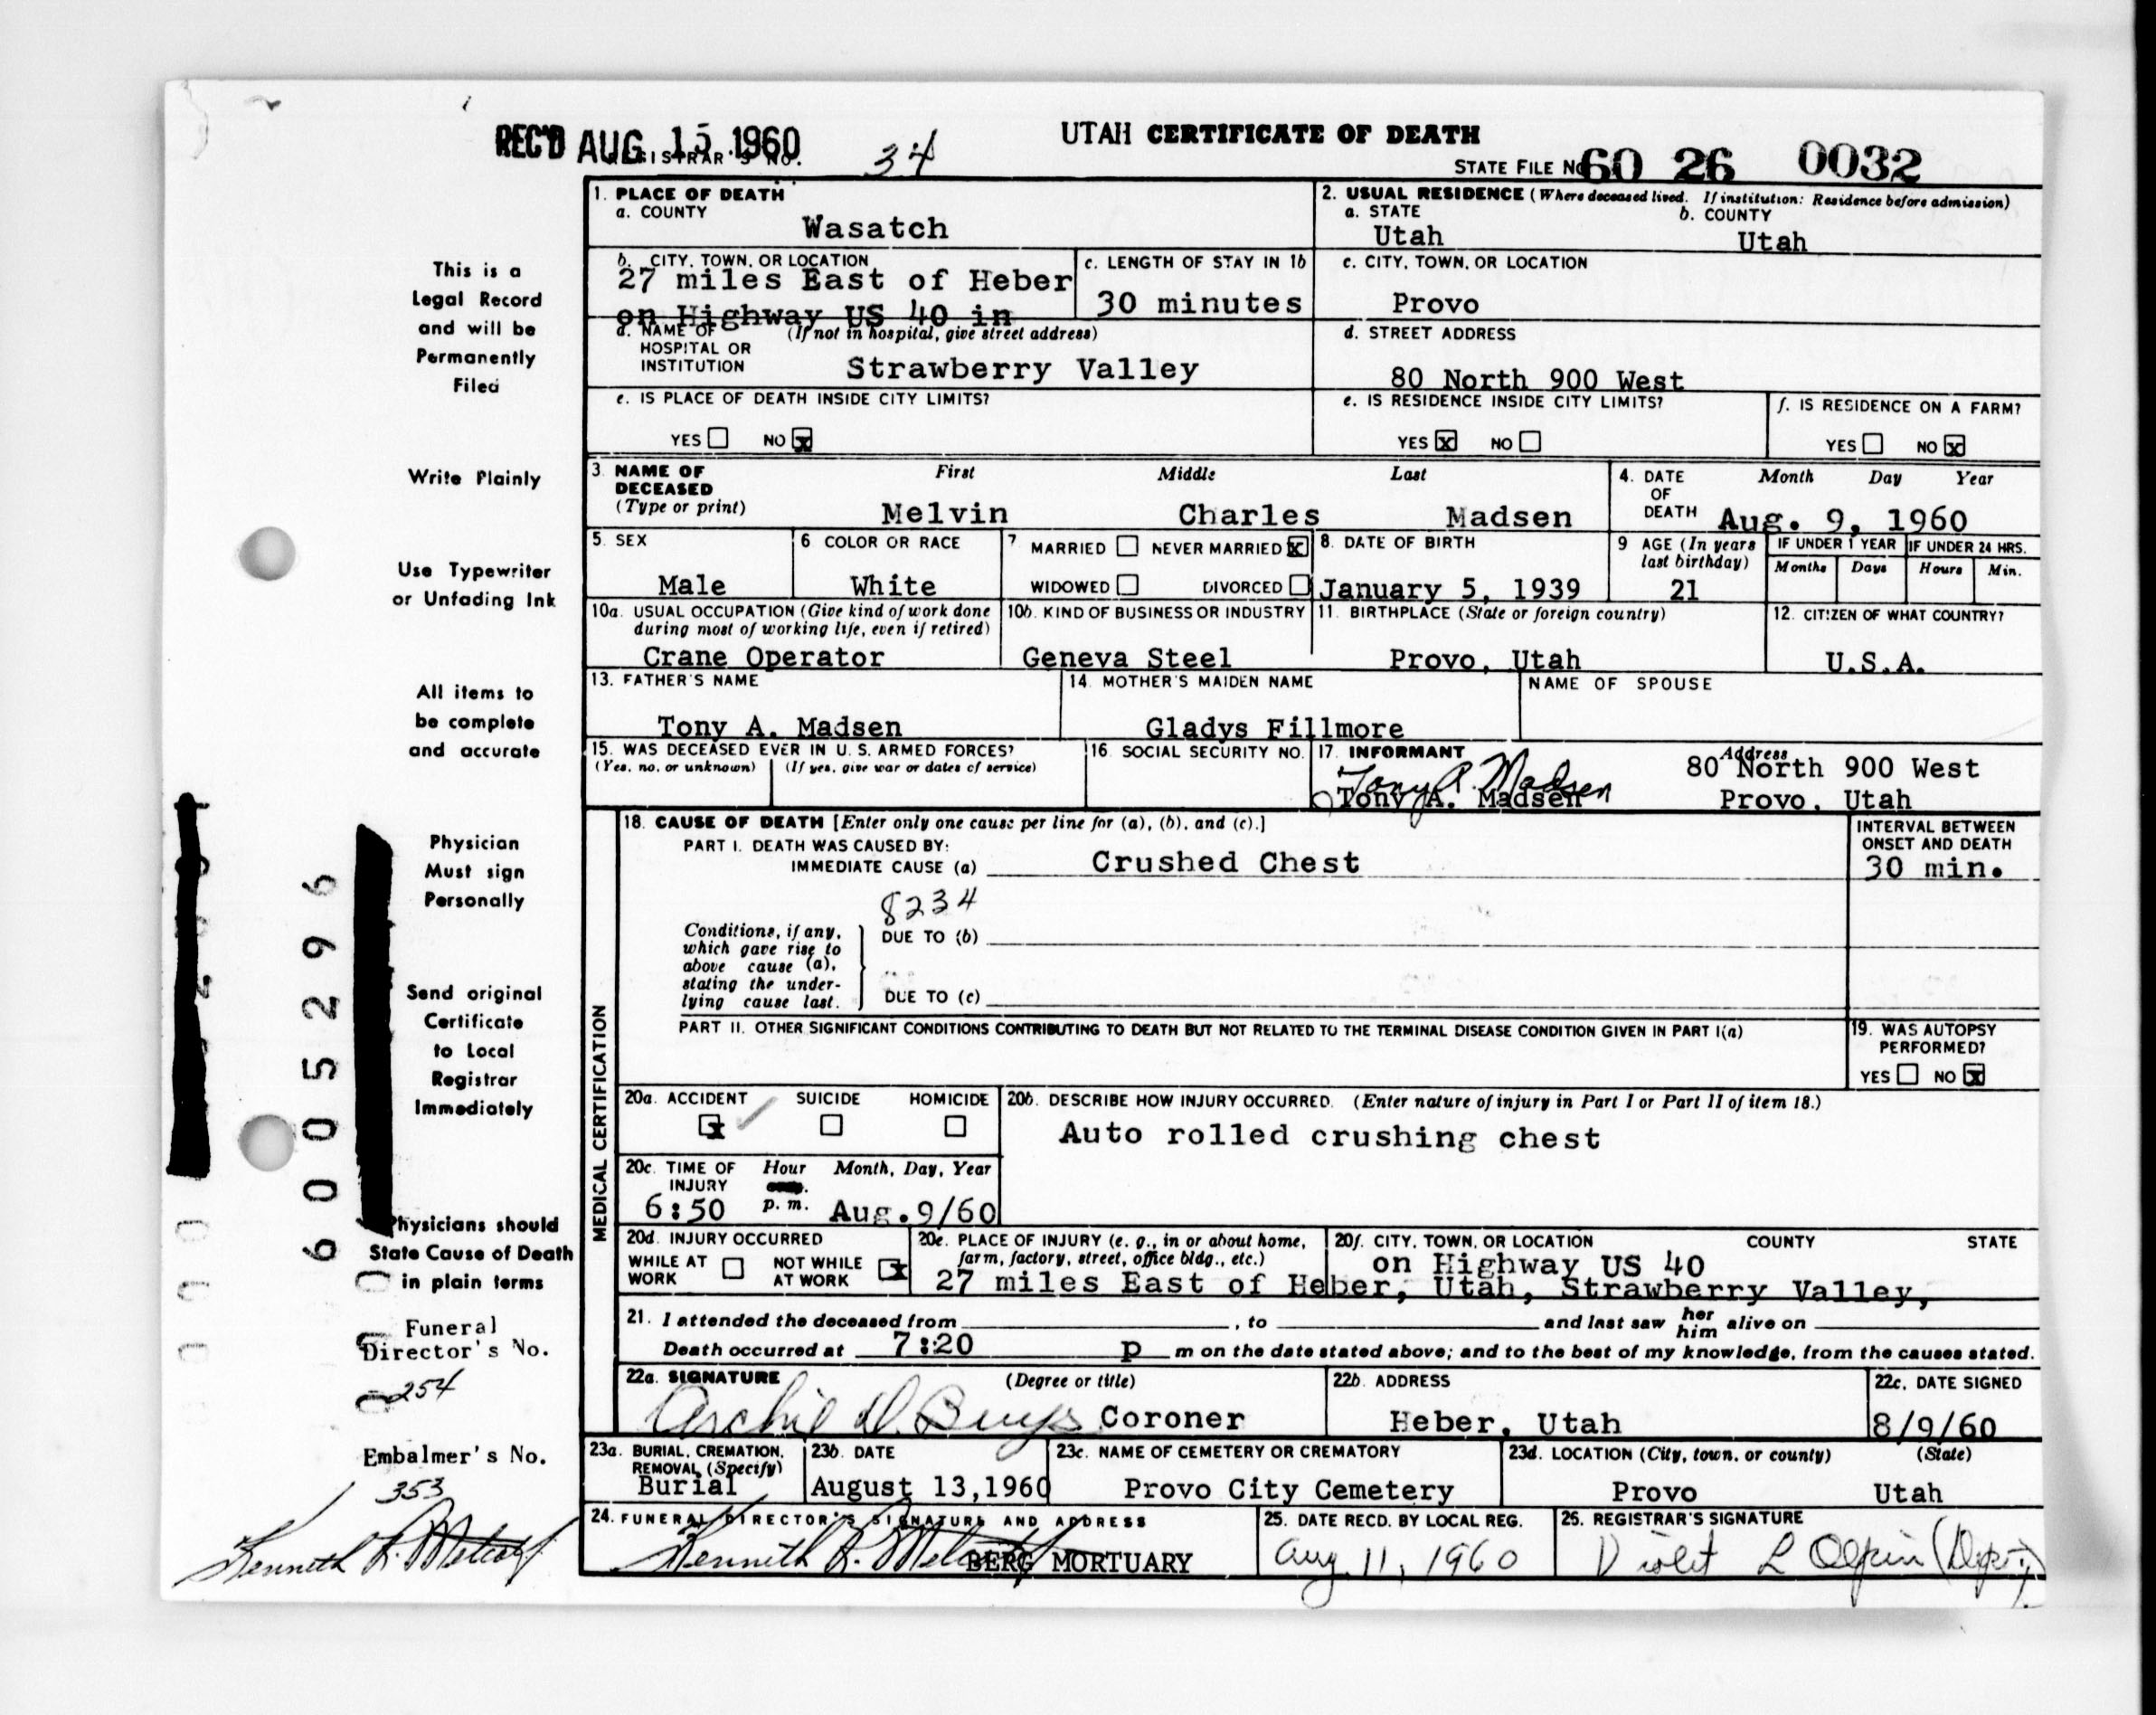 REC'D AUG 15 1960
REGISTRAR'S NO. 34
UTAH CERTIFICATE OF DEATH
STATE FILE No 60 26 0032
This is a
Legal Record
and will be
Permanently
Filed
Write Plainly
Use Typewriter
or Unfading Ink
All items to
be complete
and accurate
Physician
Must sign
Personally
Send original
Certificate
to Local
Registrar
Immediately
Physicians should
State Cause of Death
in plain terms
Funeral
Director's No.
254
Embalmer's No.
353
Kenneth R. Metcalf
6005296
1. PLACE OF DEATH
a. COUNTY
Wasatch
b. CITY, TOWN, OR LOCATION
27 miles East of Heber
on Highway US 40 in
c. LENGTH OF STAY IN 1b
30 minutes
d. NAME OF (If not in hospital, give street address)
HOSPITAL OR
INSTITUTION
Strawberry Valley
e. IS PLACE OF DEATH INSIDE CITY LIMITS?
YES NO x
2. USUAL RESIDENCE (Where deceased lived. If institution: Residence before admission)
a. STATE b. COUNTY
Utah Utah
c. CITY, TOWN, OR LOCATION
Provo
d. STREET ADDRESS
80 North 900 West
e. IS RESIDENCE INSIDE CITY LIMITS?
YES x NO
f. IS RESIDENCE ON A FARM?
YES NO x
3. NAME OF DECEASED (Type or print)
First Middle Last
Melvin Charles Madsen
4. DATE OF DEATH Month Day Year
Aug. 9, 1960
5. SEX
Male
6 COLOR OR RACE
White
7 MARRIED NEVER MARRIED x
WIDOWED DIVORCED
8. DATE OF BIRTH
January 5, 1939
9 AGE (In years last birthday)
21
IF UNDER 1 YEAR IF UNDER 24 HRS.
Months Days Hours Min.
10a. USUAL OCCUPATION (Give kind of work done
during most of working life, even if retired)
Crane Operator
10b. KIND OF BUSINESS OR INDUSTRY
Geneva Steel
11. BIRTHPLACE (State or foreign country)
Provo, Utah
12. CITIZEN OF WHAT COUNTRY?
U.S.A.
13. FATHER'S NAME
Tony A. Madsen
14. MOTHER'S MAIDEN NAME
Gladys Fillmore
NAME OF SPOUSE
15. WAS DECEASED EVER IN U. S. ARMED FORCES?
(Yes, no, or unknown) (If yes, give war or dates of service)
16. SOCIAL SECURITY NO.
17. INFORMANT Address
Tony A. Madsen
Tony A. Madsen
80 North 900 West
Provo, Utah
MEDICAL CERTIFICATION
18. CAUSE OF DEATH [Enter only one cause per line for (a), (b), and (c).]
PART I. DEATH WAS CAUSED BY:
IMMEDIATE CAUSE (a) Crushed Chest
INTERVAL BETWEEN
ONSET AND DEATH
30 min.
8234
Conditions, if any,
which gave rise to
above cause (a),
stating the under-
lying cause last.
DUE TO (b)
DUE TO (c)
PART II. OTHER SIGNIFICANT CONDITIONS CONTRIBUTING TO DEATH BUT NOT RELATED TO THE TERMINAL DISEASE CONDITION GIVEN IN PART I(a)
19. WAS AUTOPSY
PERFORMED?
YES NO x
20a. ACCIDENT SUICIDE HOMICIDE
x
20b. DESCRIBE HOW INJURY OCCURRED. (Enter nature of injury in Part I or Part II of item 18.)
Auto rolled crushing chest
20c. TIME OF INJURY Hour Month, Day, Year
6:50 p. m. Aug.9/60
20d. INJURY OCCURRED
WHILE AT WORK NOT WHILE AT WORK x
20e. PLACE OF INJURY (e. g., in or about home,
farm, factory, street, office bldg., etc.)
20f. CITY, TOWN, OR LOCATION COUNTY STATE
on Highway US 40
27 miles East of Heber, Utah, Strawberry Valley,
21. I attended the deceased from , to and last saw her him alive on
Death occurred at 7:20 p m on the date stated above; and to the best of my knowledge, from the causes stated.
22a. SIGNATURE (Degree or title)
Archie D. Buys Coroner
22b. ADDRESS
Heber, Utah
22c. DATE SIGNED
8/9/60
23a. BURIAL, CREMATION,
REMOVAL (Specify)
Burial
23b. DATE
August 13,1960
23c. NAME OF CEMETERY OR CREMATORY
Provo City Cemetery
23d. LOCATION (City, town, or county) (State)
Provo Utah
24. FUNERAL DIRECTOR'S SIGNATURE AND ADDRESS
Kenneth R. Metcalf
BERG MORTUARY
25. DATE RECD. BY LOCAL REG.
Aug 11, 1960
25. REGISTRAR'S SIGNATURE
Violet L Olpin (Dept.)